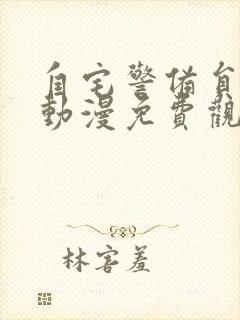 自宅警備員
動漫免費觀
林害羞